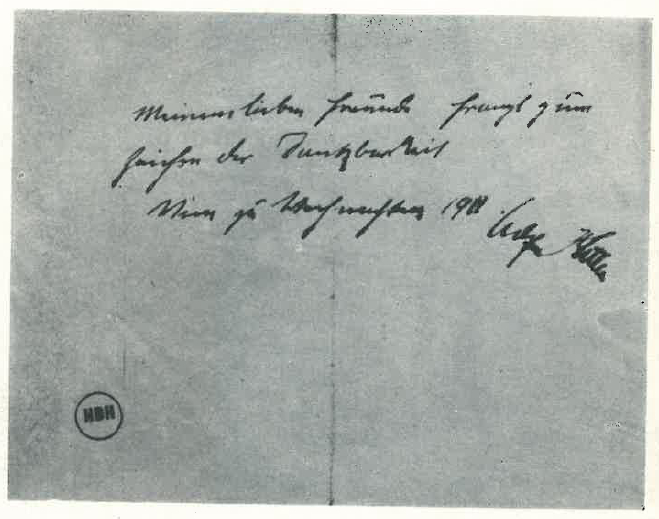 Meinem lieben Freunde Franzl zum
Zeichen der Dankbarkeit
Wien zu Weihnachten 1911 Adolf Hitler
HBH